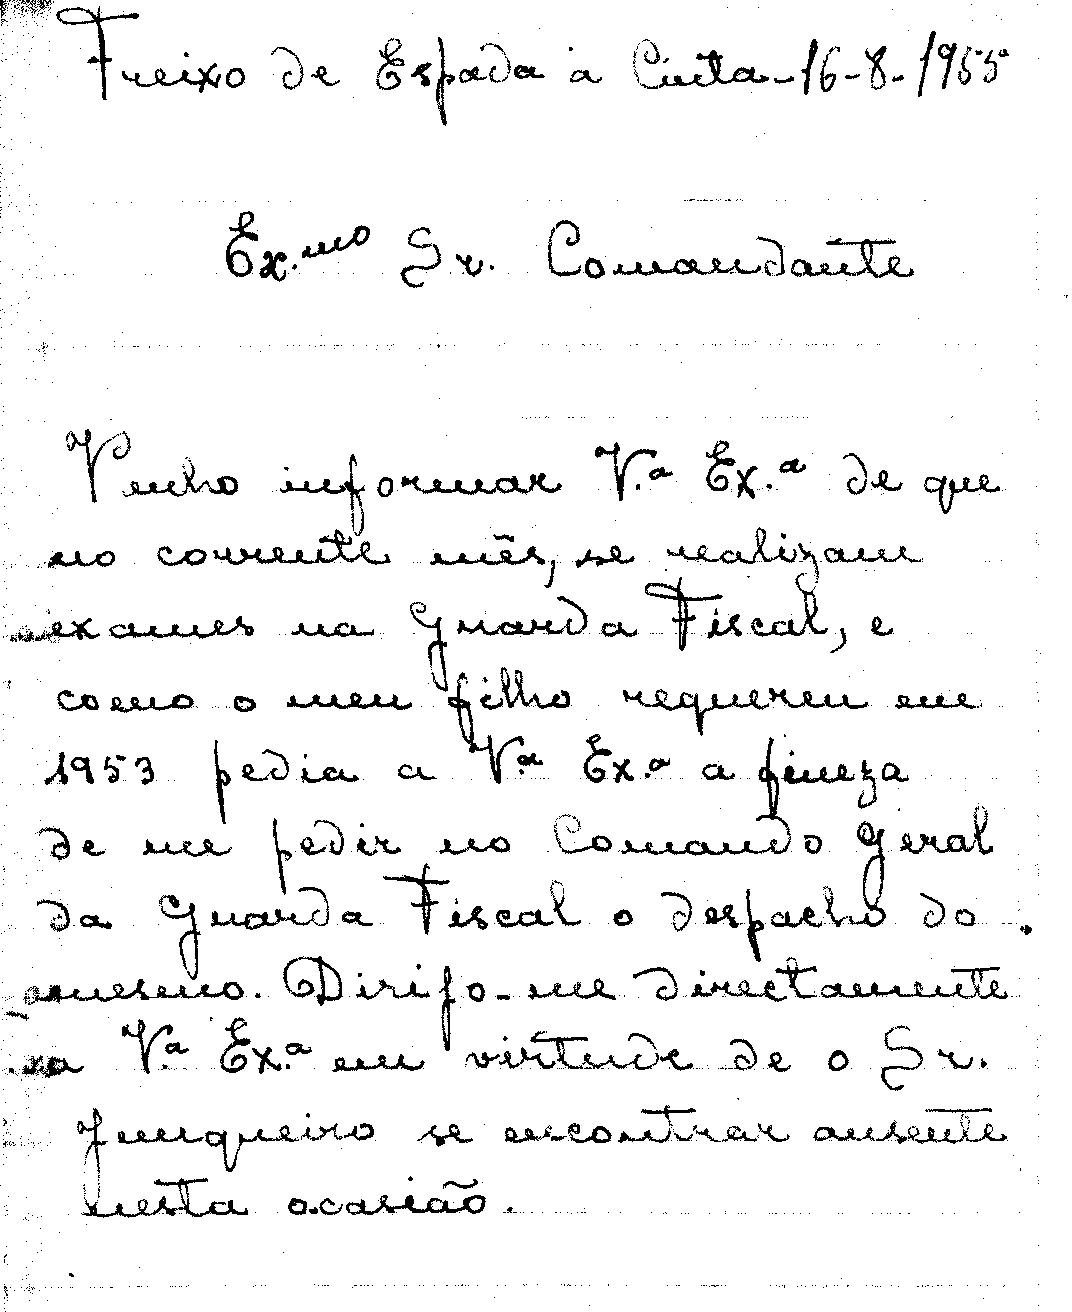 Freixo de Espada à Cinta-16-8-1955
Ex.mo Sr. Comandante
Venho informar V.ª Ex.ª de que
no corrente mês, se realizam
exames na Guarda Fiscal, e
como o meu filho requereu em
1953 pedia a V.ª Ex.ª a fineza
de me pedir no Comando Geral
da Guarda Fiscal o despacho do
mesmo. Dirijo-me directamente
a V.ª Ex.ª em virtude de o Sr.
Junqueiro se encontrar ausente
nesta ocasião.